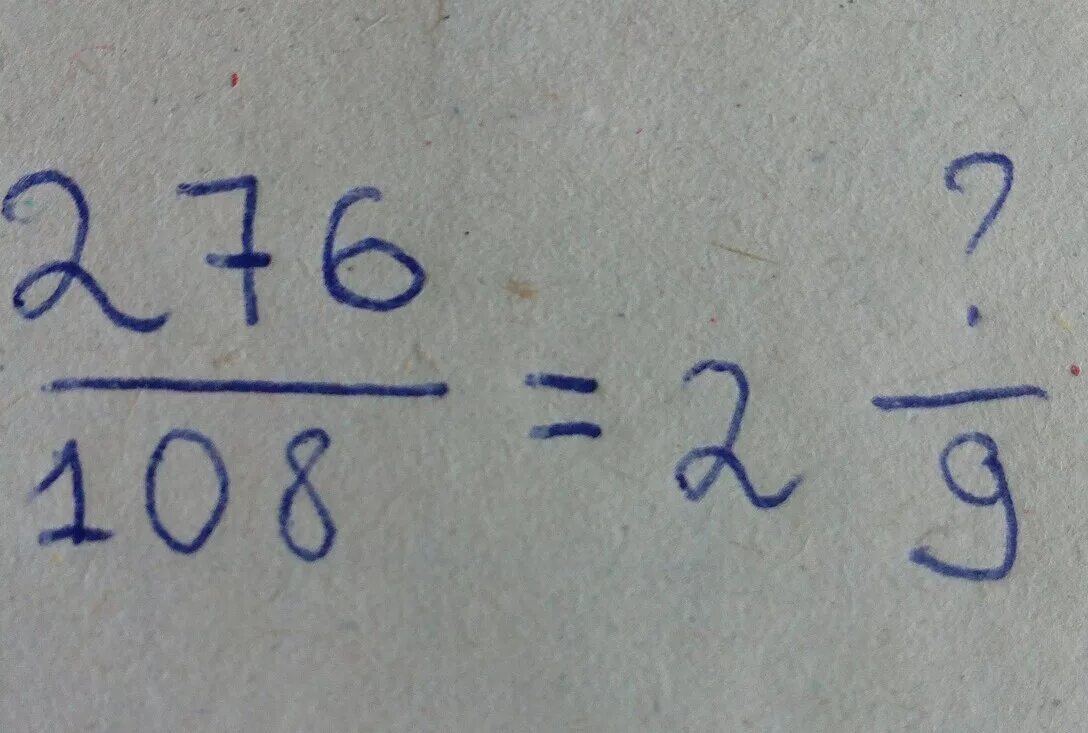 276/108 = 2 ?/9